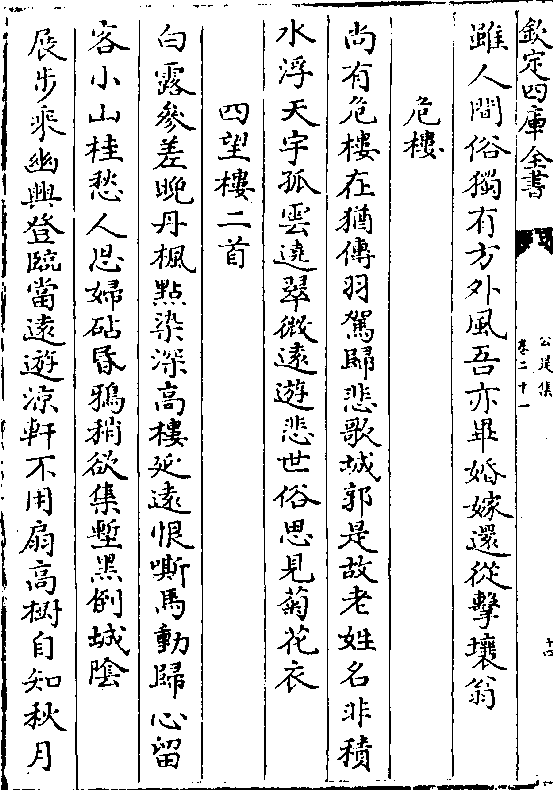 欽定四庫全書
公是集
卷二十一
十四
雖人間俗獨有方外風吾亦畢婚嫁還從擊壤翁
危樓
尚有危樓在猶傳羽駕歸悲歌城郭是故老姓名非積
水浮天宇孤雲遶翠微遠遊悲世俗思見菊花衣
四望樓二首
白露參差晚丹楓點染深高樓延遠恨嘶馬動歸心留
客小山桂愁人思婦砧昏鴉稍欲集塹黑倒城隂
展步乘幽興登臨當遠遊涼軒不用扇高樹自知秋月